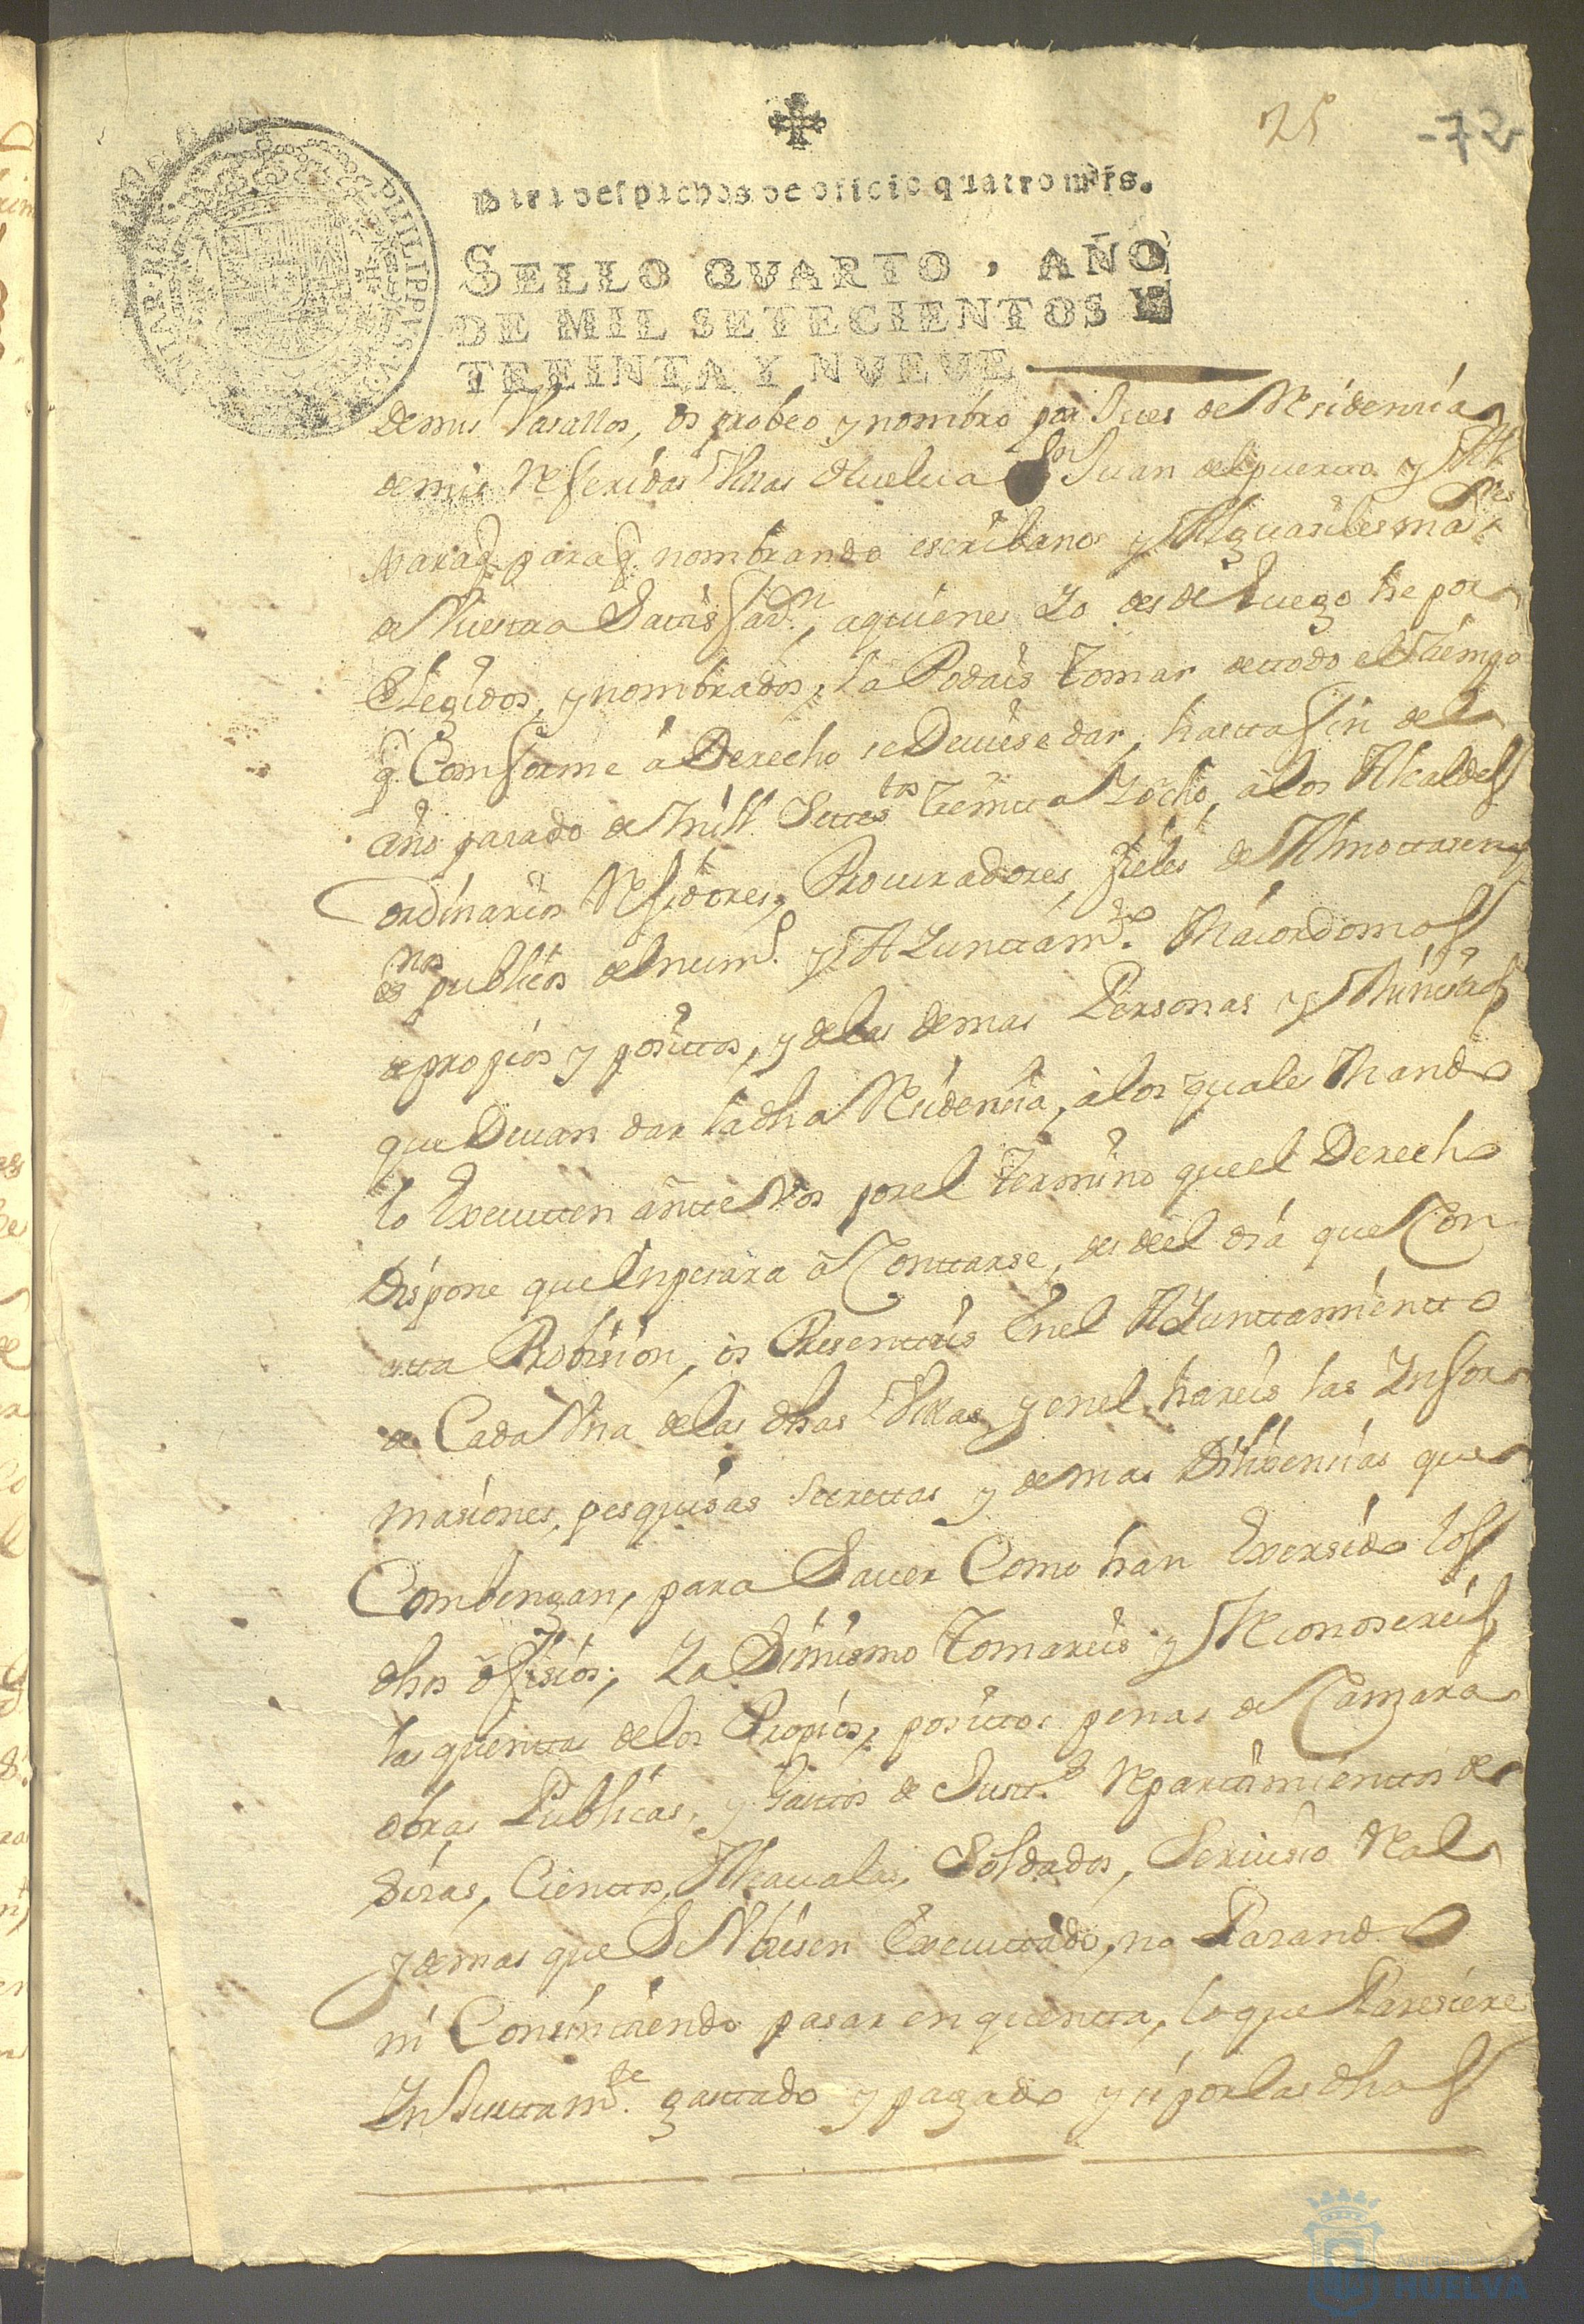 25
-72
Para despachos de oficio quatro mrs.
SELLO QVARTO, AÑO
DE MIL SETECIENTOS Y
TREINTA Y NVEVE
PHILIPPVS V
de mis Vasallos, os probeo y nombro por Jues de Residencia
de mis Referidas Villas Huelua Sn Juan del puerto y
para q. nombrando escribanos y Alguasiles mares
de Vuestra Satisfaon, aquienes Yo desde Luego he por
Elegidos, y nombrados, la Podais tomar de ttodo el Tiempo
q. Comforme à Derecho se Deuiese dar, hastta fin del
año pasado de mill Settestos Treintta Yocho, àlos Alcaldes
ordinarios Rexidores, Procuradores, fieles de Almottasen
esnos publicos del numo. y AYunttamto. Maiordomos
de propios y posittos, y delas demas Personas y Ministros
que Deuan dar la dha Residencia, àlos quales Mando
lo Executten antte Vos por el Termino que el Derecho
Dispone que Enpesara à Conttarse, desde el dia que Con
estta Probision, os Presentteis En el AYunttamientto
de Cada Vna delas dhas Villas, y enel, hareis las Ynfor
masiones, pesquisas secrettas y demas Dilixencias que
Combengan, para Sauer Como han Exersido los
dhos ofisios; Ya Simismo Tomareis y Reconosereis
las quenttas delos Propios, posittos penas de Camara
obras Publicas, y Gasttos de Justta. Reparttimienttos de
Sisas, Cienttos, Alcaualas, Soldados, Seruisio Real
y demas que Se Vbiesen Executtado, no Pasando
ni Consinttiendo pasar en quentta, lo que Paresiere
YnJusttamte. gasttado y pagado y si por las dhas
HUELVA